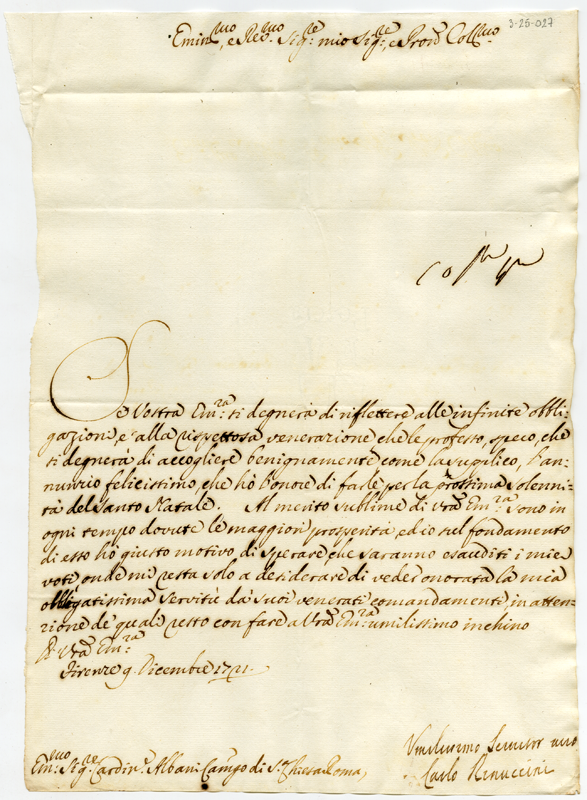 3-25-027
Emin:mo, e Rev:mo Sig:re mio Sig:re, e Pron: Coll:mo
Se Vostra Em:za si degnerà di riflettere alle infinite obbli-
gazioni, e alla rispettosa venerazione che le professo, spero, che
si degnerà di accogliere benignamente come la supplico, l'an-
nunzio felicissimo, che hò l'onore di farle per la prossima solenni-
tà del Santo Natale. Al merito sublime di Vra Em:za sono in
ogni tempo dovute le maggiori prosperità, ed io sul fondamento
di esso hò giusto motivo di sperare, che saranno esauditi i miei
voti, onde mi resta solo a desiderare di veder onorata la mia
obbligatissima servitù da' suoi venerati comandamenti, in atten-
zione de' quali resto con fare a Vra Em:za umilissimo inchino
Di Vra Em:za
Firenze 9. Dicembre 1721.
Umilissimo Servitor vero
Carlo Rinuccini
Em:mo Sig:re Cardin: Albani Camgo di S:ta Chiesa Roma,